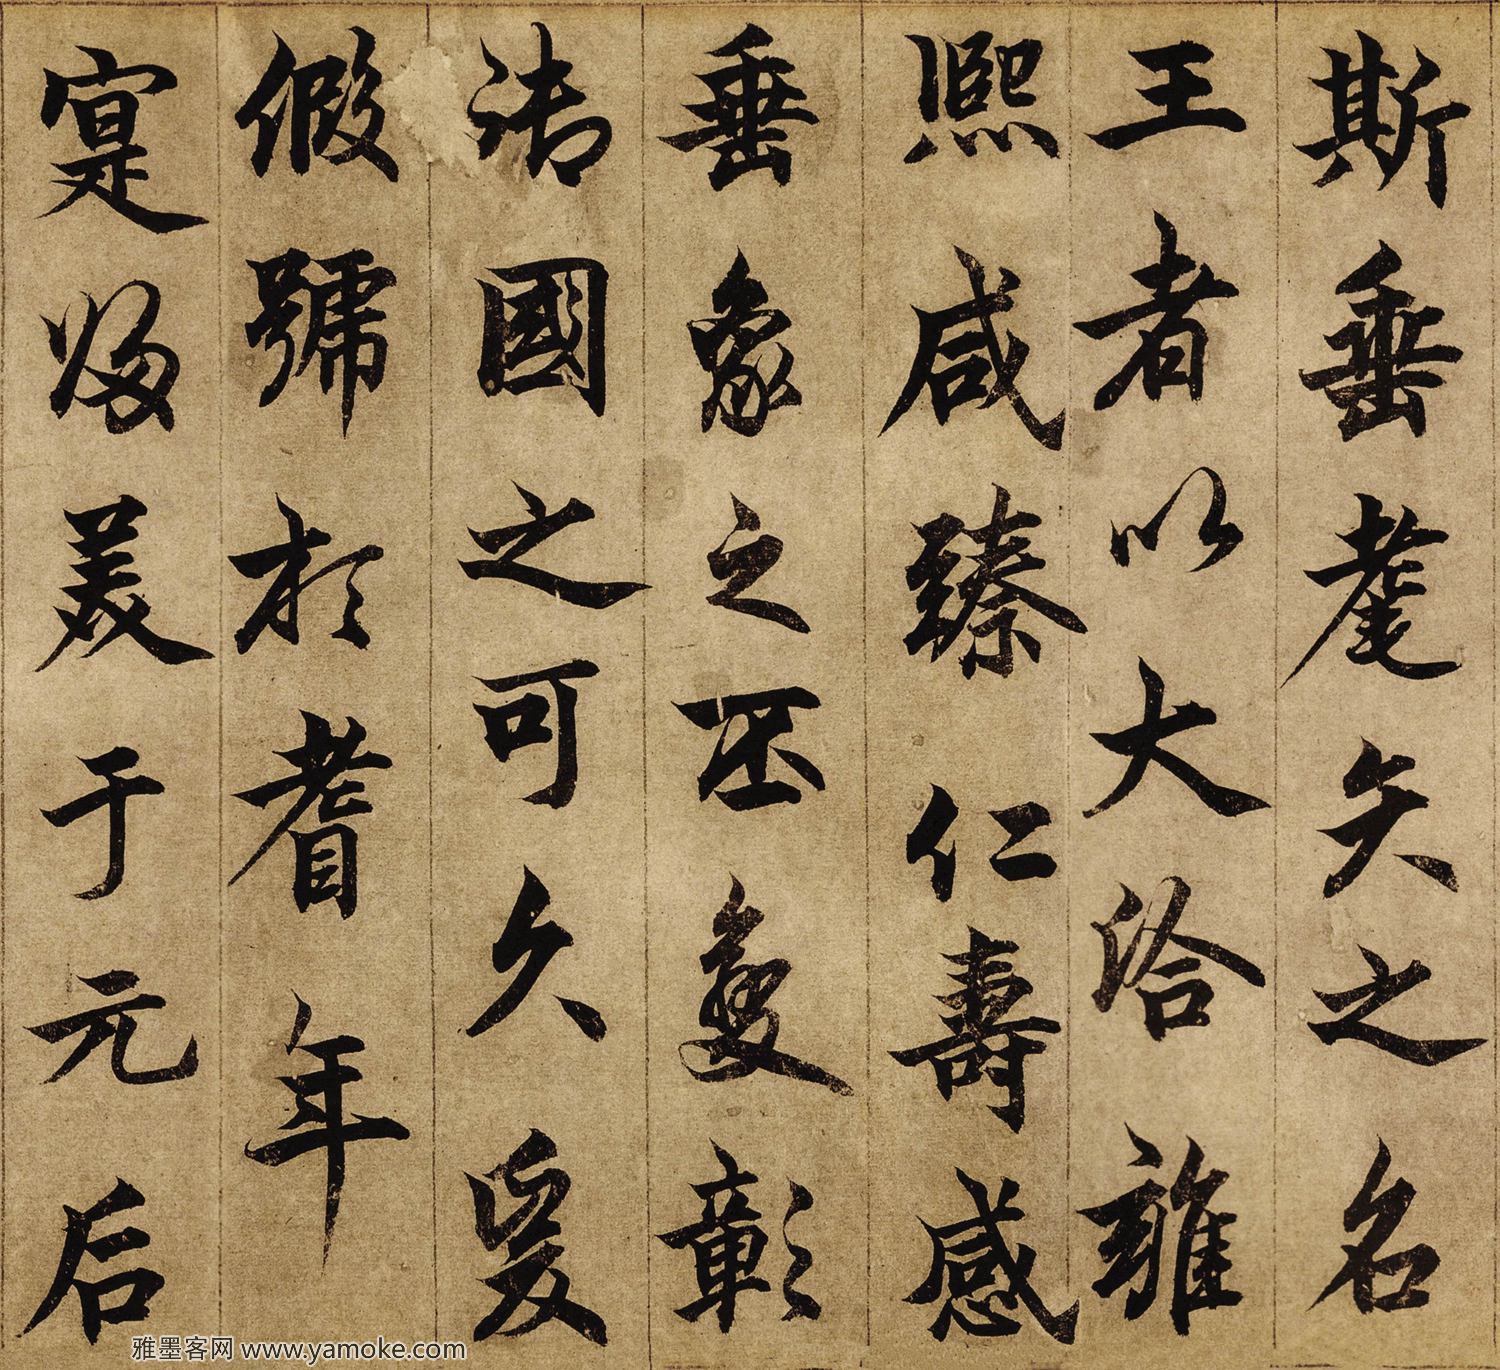 斯垂耄矢之名
王者以大洽雍
熙咸臻仁壽感
垂象之丕變彰
法國之可久爰
假號於耆年
寔歸美于元后
雅墨客网 www.yamoke.com